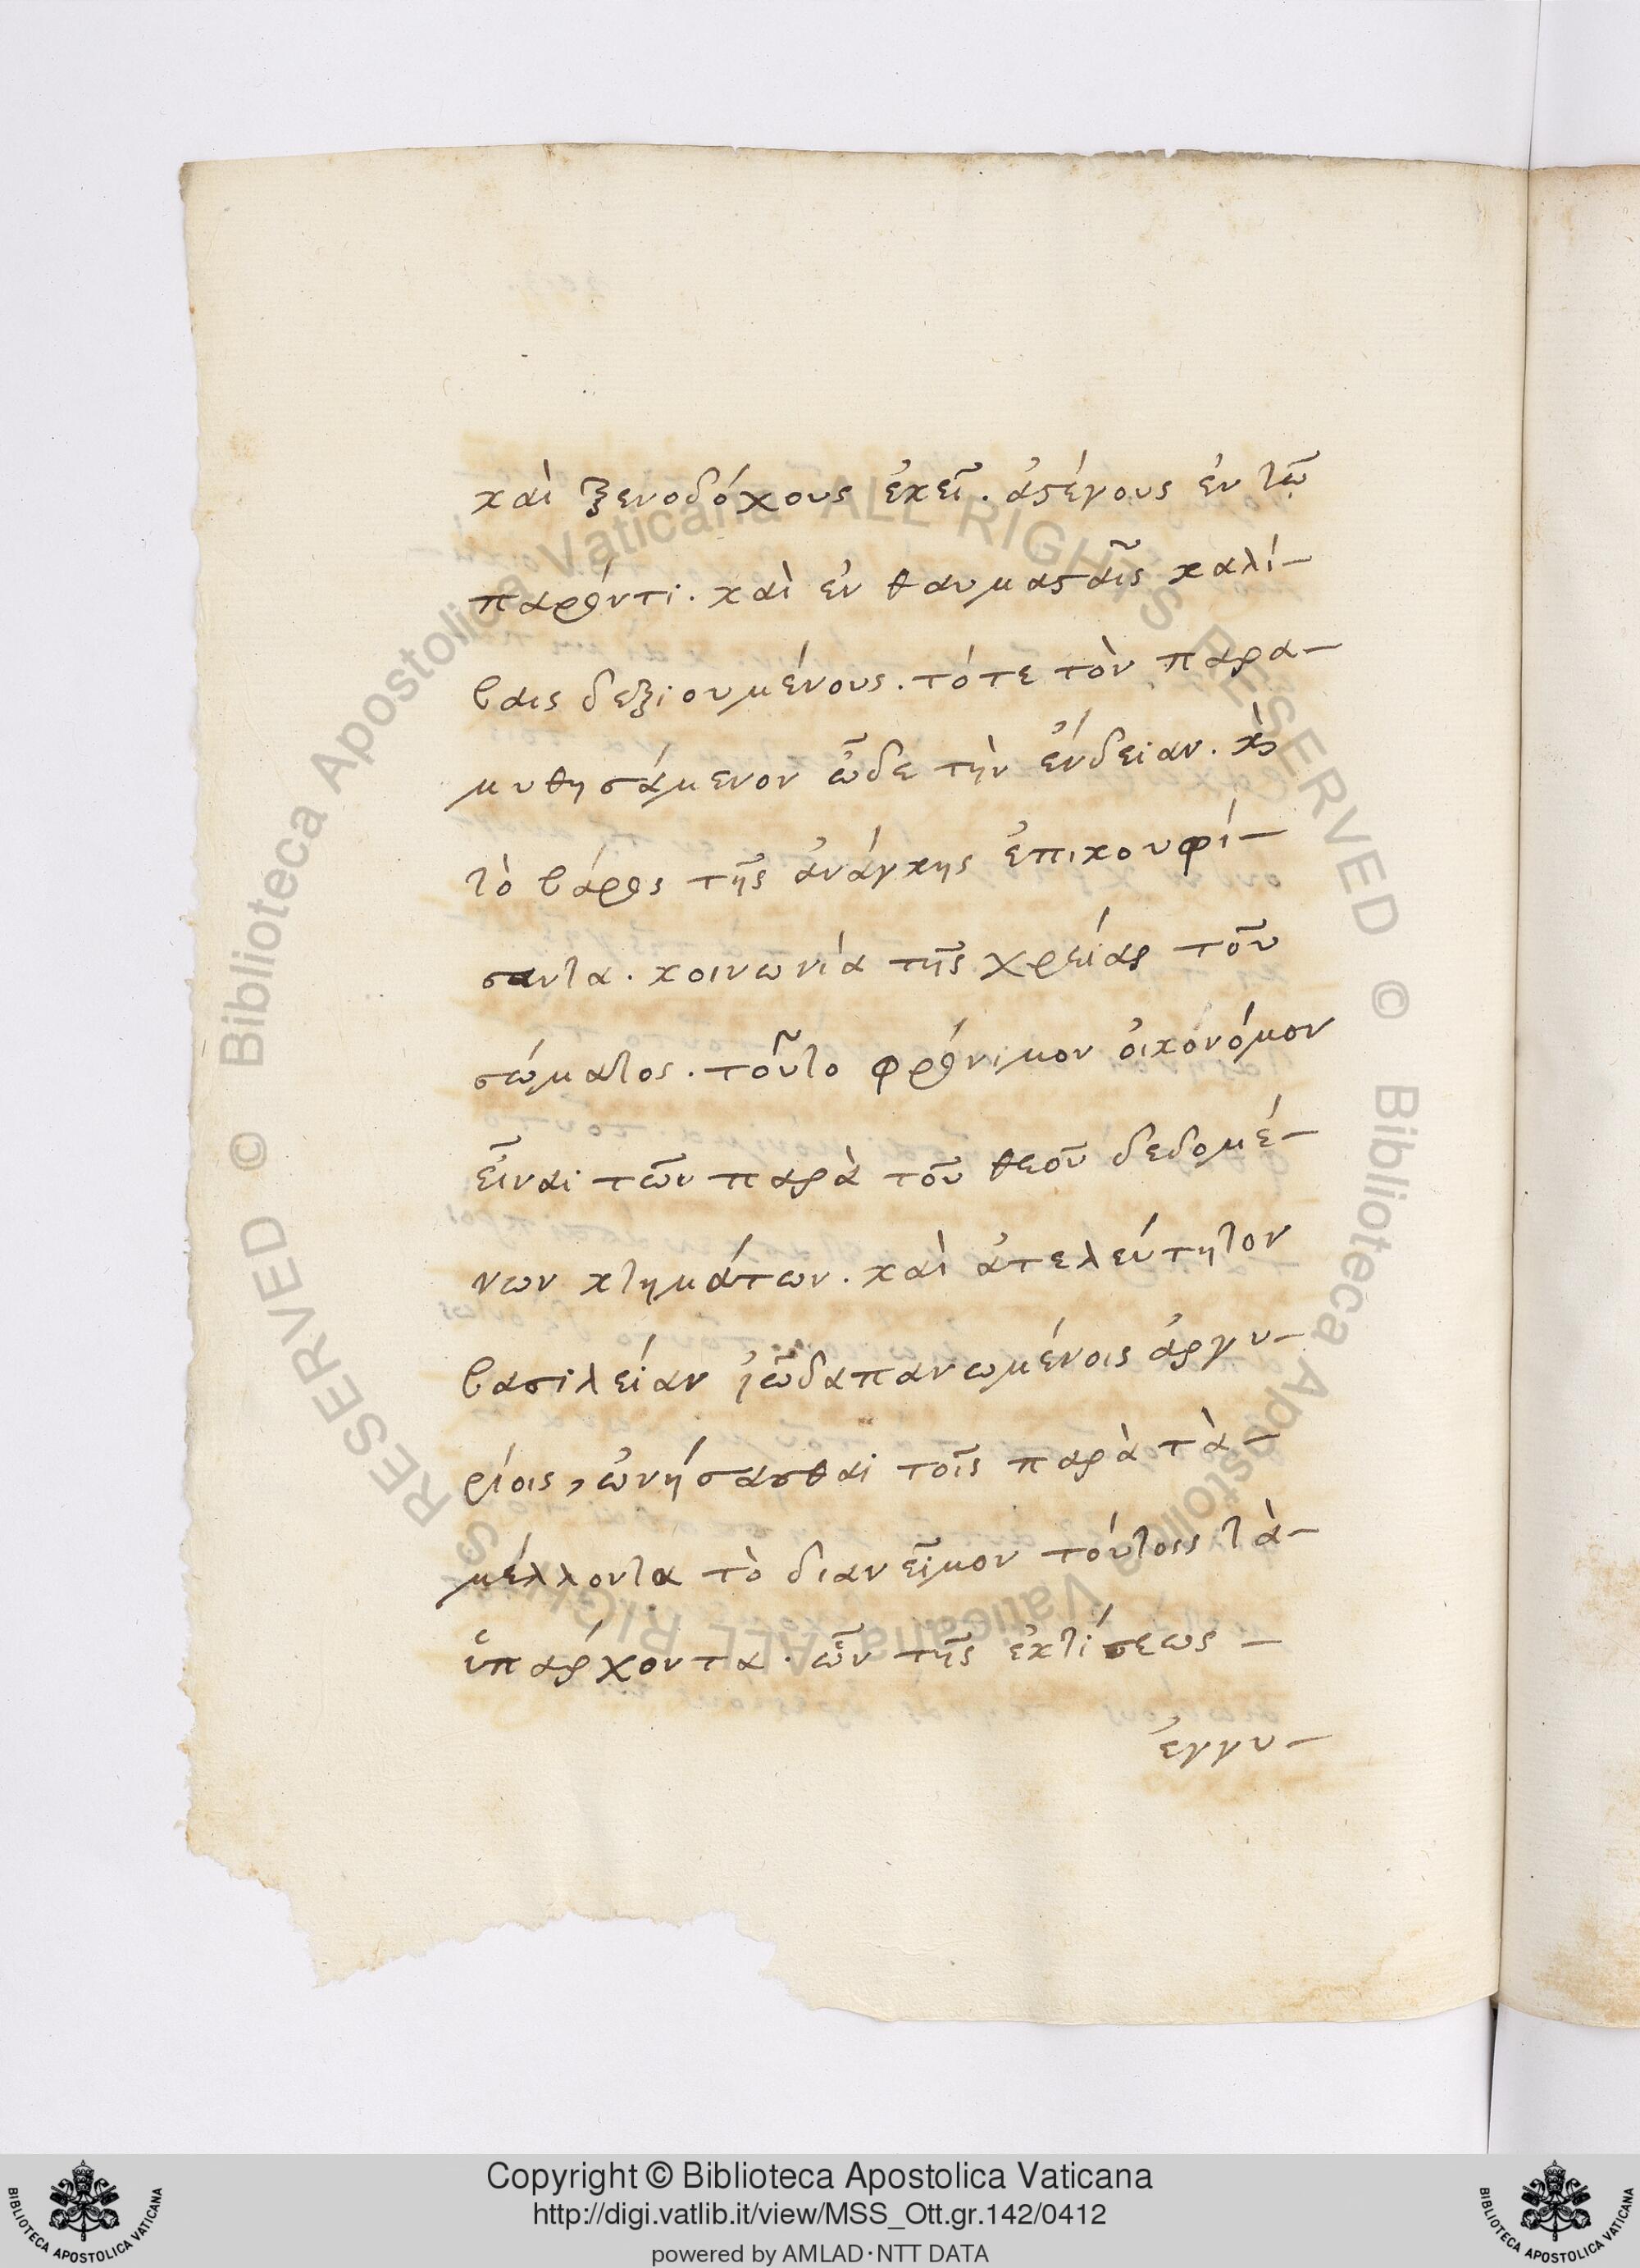 καὶ ξενοδόχους ἐκεῖ. ἀστέγους ἐν τῶ
παρόντι. καὶ ἐν θαυμασταῖς καλί-
βαις δεξιουμένους. τότε τὸν παρα-
μυθησάμενον ὧδε τὴν ἔνδειαν. κὶ
τὸ βάρος τῆς ἀνάγκης ἐπικουφί-
σαντα. κοινωνία τῆς χρείας τοῦ
σώματος. τοῦτο φρόνιμον οἰκόνόμον
εἶναι τῶν παρὰ τοῦ θεοῦ δεδομέ-
νων κτημάτων. καὶ ἀτελεύτητον
βασιλείαν δαπανωμένοις ἀργυ-
ρίοις, ὠνήσασθαι τοῖς παρὰ τὰ-
μέλλοντα τὸ διανεῖμον τούτοις τὰ-
ὑπάρχοντα. ὧν τῆς ἐκτίσεως -
ἐγγυ-
Biblioteca Apostolica Vaticana ALL RIGHTS RESERVED ©
Biblioteca Apostolica Vaticana ALL RIGHTS RESERVED ©
Copyright © Biblioteca Apostolica Vaticana
http://digi.vatlib.it/view/MSS_Ott.gr.142/0412
powered by AMLAD·NTT DATA
BIBLIOTECA APOSTOLICA VATICANA
BIBLIOTECA APOSTOLICA VATICANA